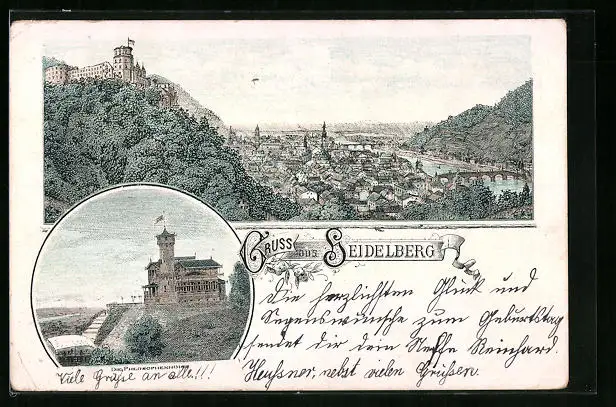 Gruss aus Heidelberg
Die herzlichsten Glück und
Segenswünsche zum Geburtstag
sendet dir dein Neffe Reinhard
Heussner, nebst vielen Grüssen.
Die Philosophenhöhe
Viele Grüße an alle!!!